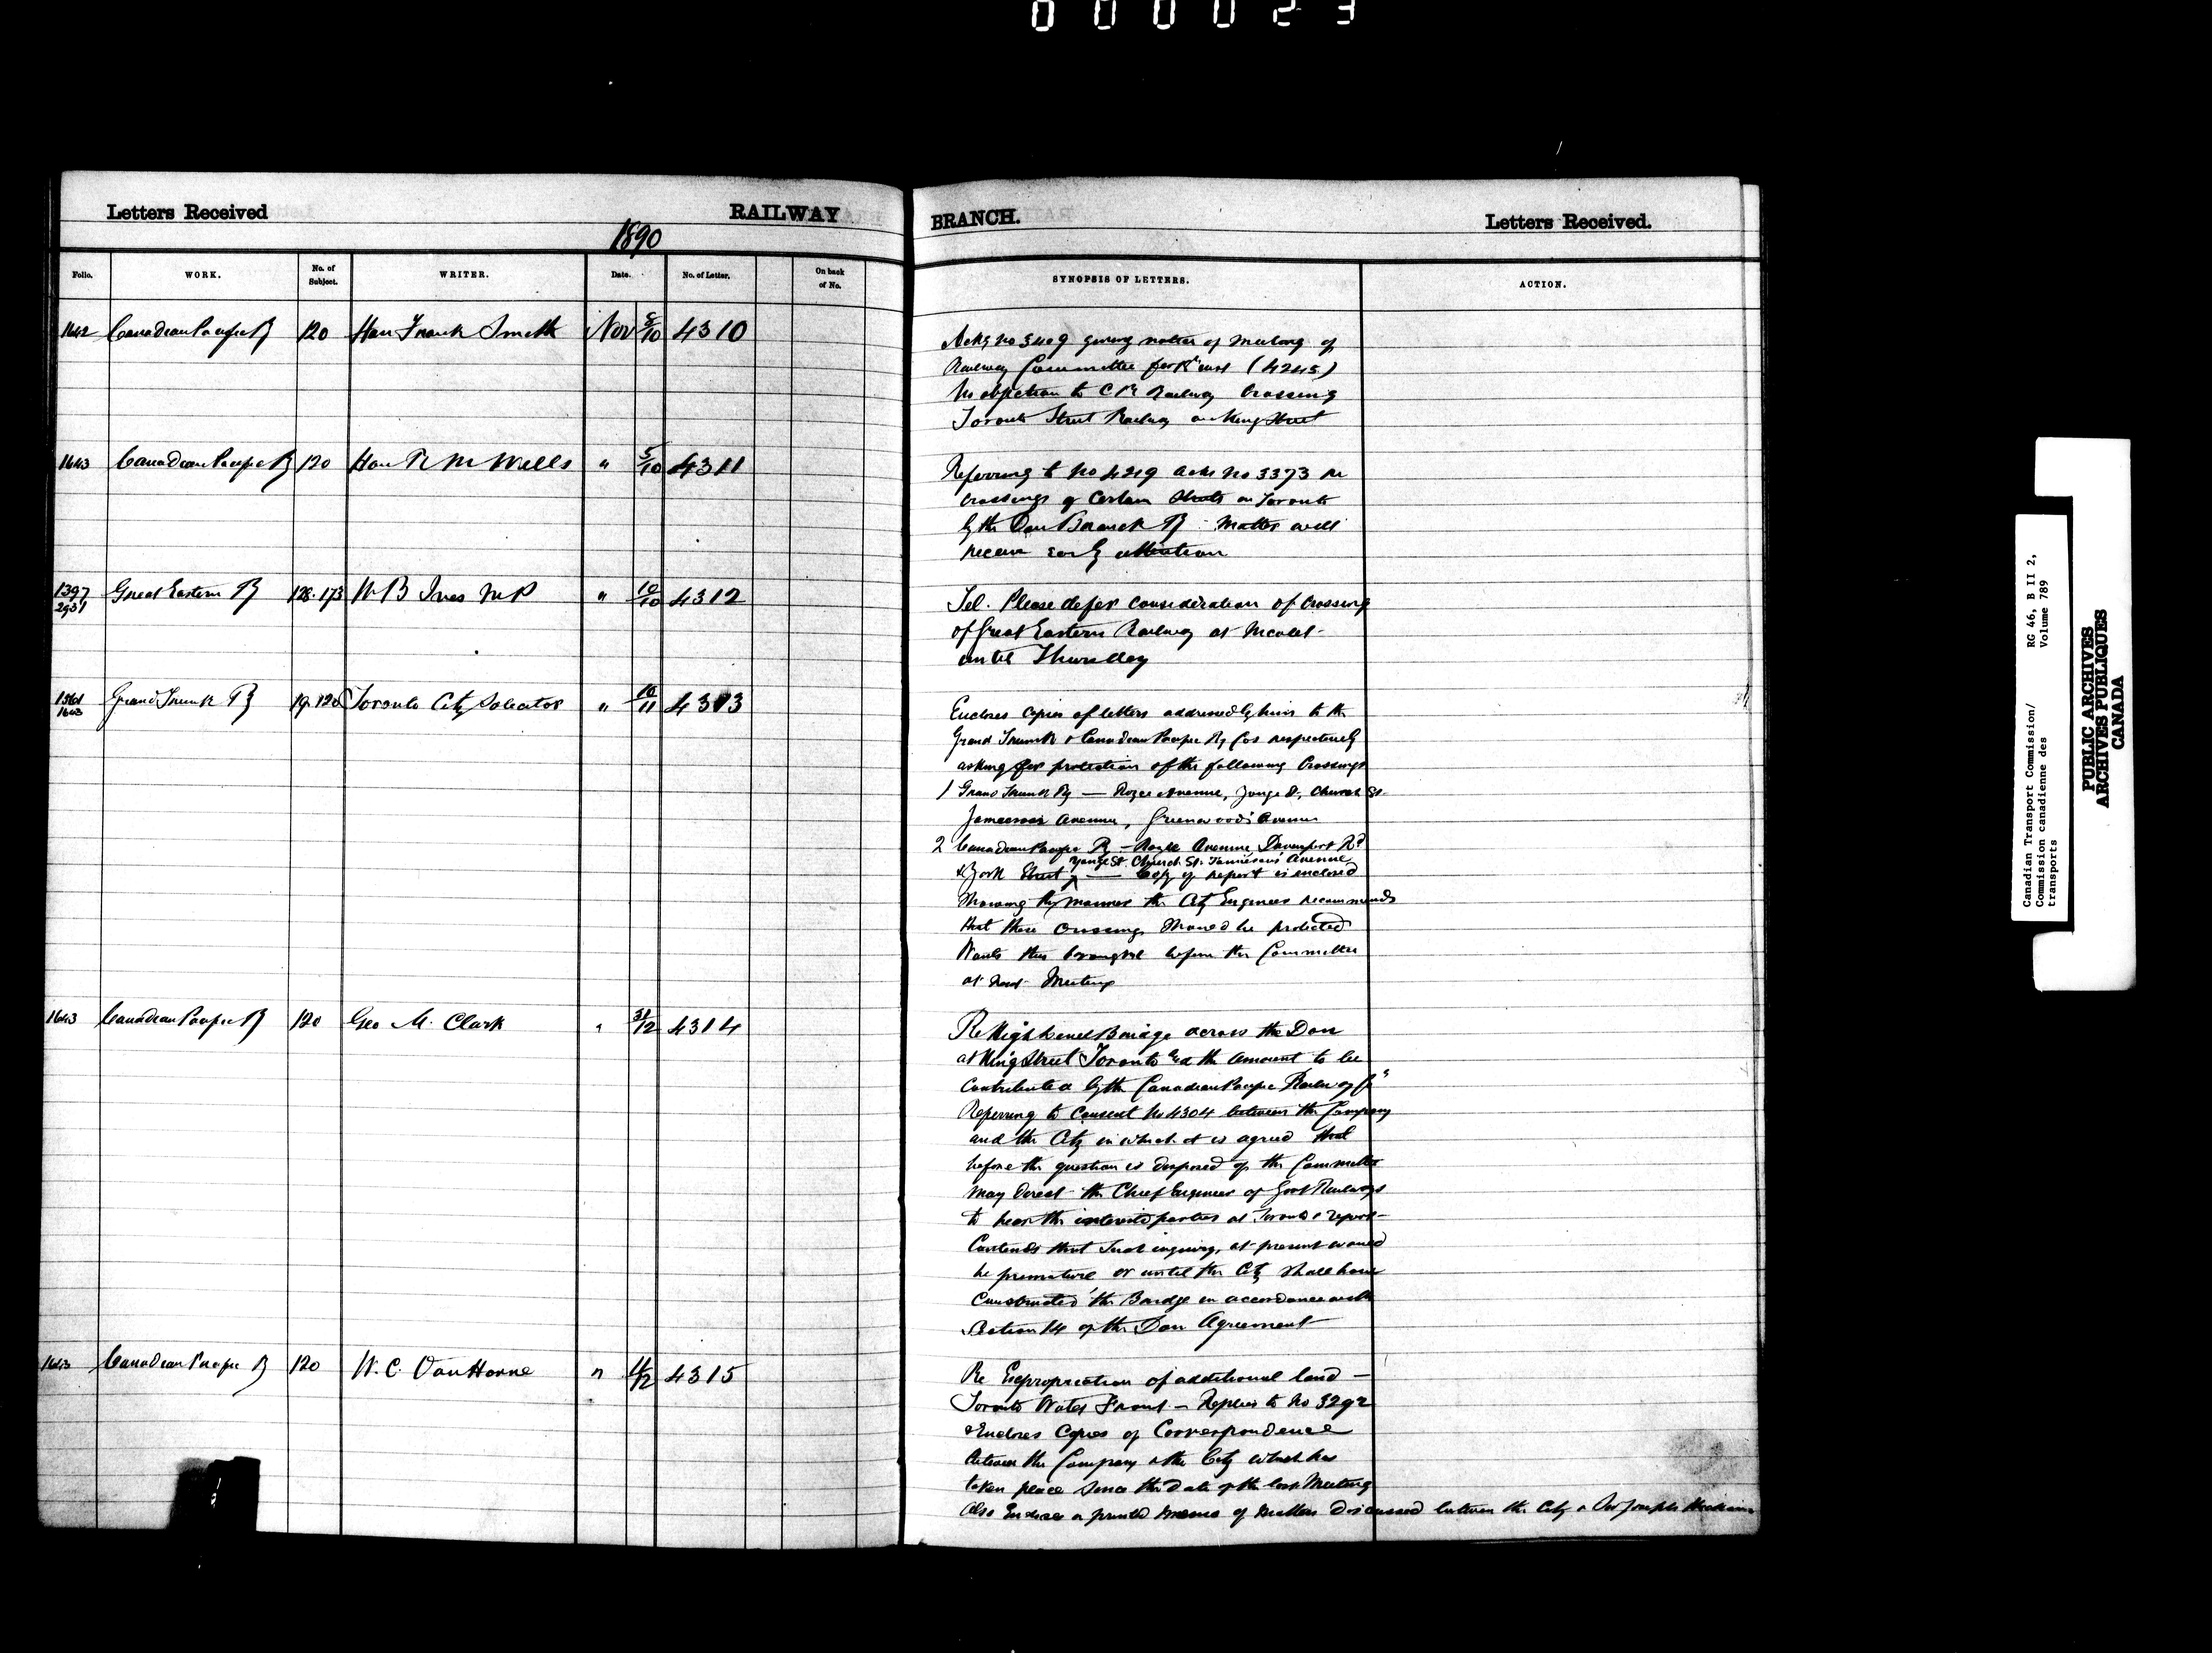 000023
Letters Received
RAILWAY
BRANCH.
Letters Received.
1890
Folio.
WORK.
No. of Subject.
WRITER.
Date.
No. of Letter.
On back of No.
SYNOPSIS OF LETTERS.
ACTION.
1642 Canadian Pacific Ry 120 Hon Frank Smith Nov 8/10 4310
Acks no 3409 giving notice of meeting of
Railway Committee for inst (4245)
No objection to C P Railway Crossing
Toronto Street Railway on King Street
1643 Canadian Pacific Ry 120 Hon R M Wells " 5/10 4311
Referring to No 4219 acks no 3373 re
crossings of Certain Streets in Toronto
by the Don Branch Ry Matter will
receive early attention
1397 2931 Great Eastern Ry 128.173 W B Ives M P " 10/10 4312
Tel. Please defer consideration of Crossing
of Great Eastern Railway at Nicolet
until Thursday
1561 1643 Grand Trunk Ry 19.120 Toronto City Solicitor " 10/11 4313
Encloses Copies of letters addressed by him to the
Grand Trunk & Canadian Pacific Ry Cos respectively
asking for protection of the following Crossings
1 Grand Trunk Ry — Avenue, Yonge St, Church St
Jamiesons Avenue, Greenwoods Avenue
2 Canadian Pacific Ry — Avenue Davenport Rd
Yonge St. Church St. Jamiesons Avenue
& York Street — Copy of report is enclosed
Showing the manner the City Engineer recommends
that these Crossings should be protected
Wants this brought before the Committee
at next Meeting
1643 Canadian Pacific Ry 120 Geo M. Clark " 31/12 4314
Re High Level Bridge across the Don
at King Street Toronto and the Amount to be
Contributed by the Canadian Pacific Railway Co
Referring to Consent No 4304 between the Company
and the City in which it is agreed that
before the question is disposed of the Committee
may direct the Chief Engineer of Govt Railways
to hear the interested parties at Toronto & report
Contends that such inquiry, at present would
be premature or until the City shall have
Constructed the Bridge in accordance with
Section 14 of the Don Agreement
1643 Canadian Pacific Ry 120 W. C. Van Horne " 11/12 4315
Re Expropriation of additional land —
Toronto Water Front — Replies to No 3292
& Encloses Copies of Correspondence
between the Company & the City which has
taken place since the date of the last Meeting
Also Encloses a printed memo of Matters discussed between the City & Sir Joseph Hickson
Canadian Transport Commission/
Commission canadienne des
transports
RG 46, B II 2,
Volume 789
PUBLIC ARCHIVES
ARCHIVES PUBLIQUES
CANADA